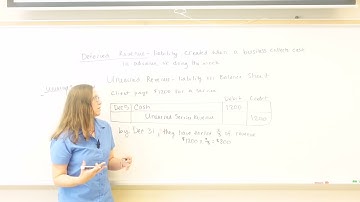 Deferred Revenue - liability created when a business collects cash
in advance of doing the work
Unearned Revenue - liability on Balance Sheet
Client pays $1200 for a service
Debit Credit
Dec 5 Cash 1200
Unearned Service Revenue 1200
by Dec 31, they have earned of revenue
$1200 x = $800